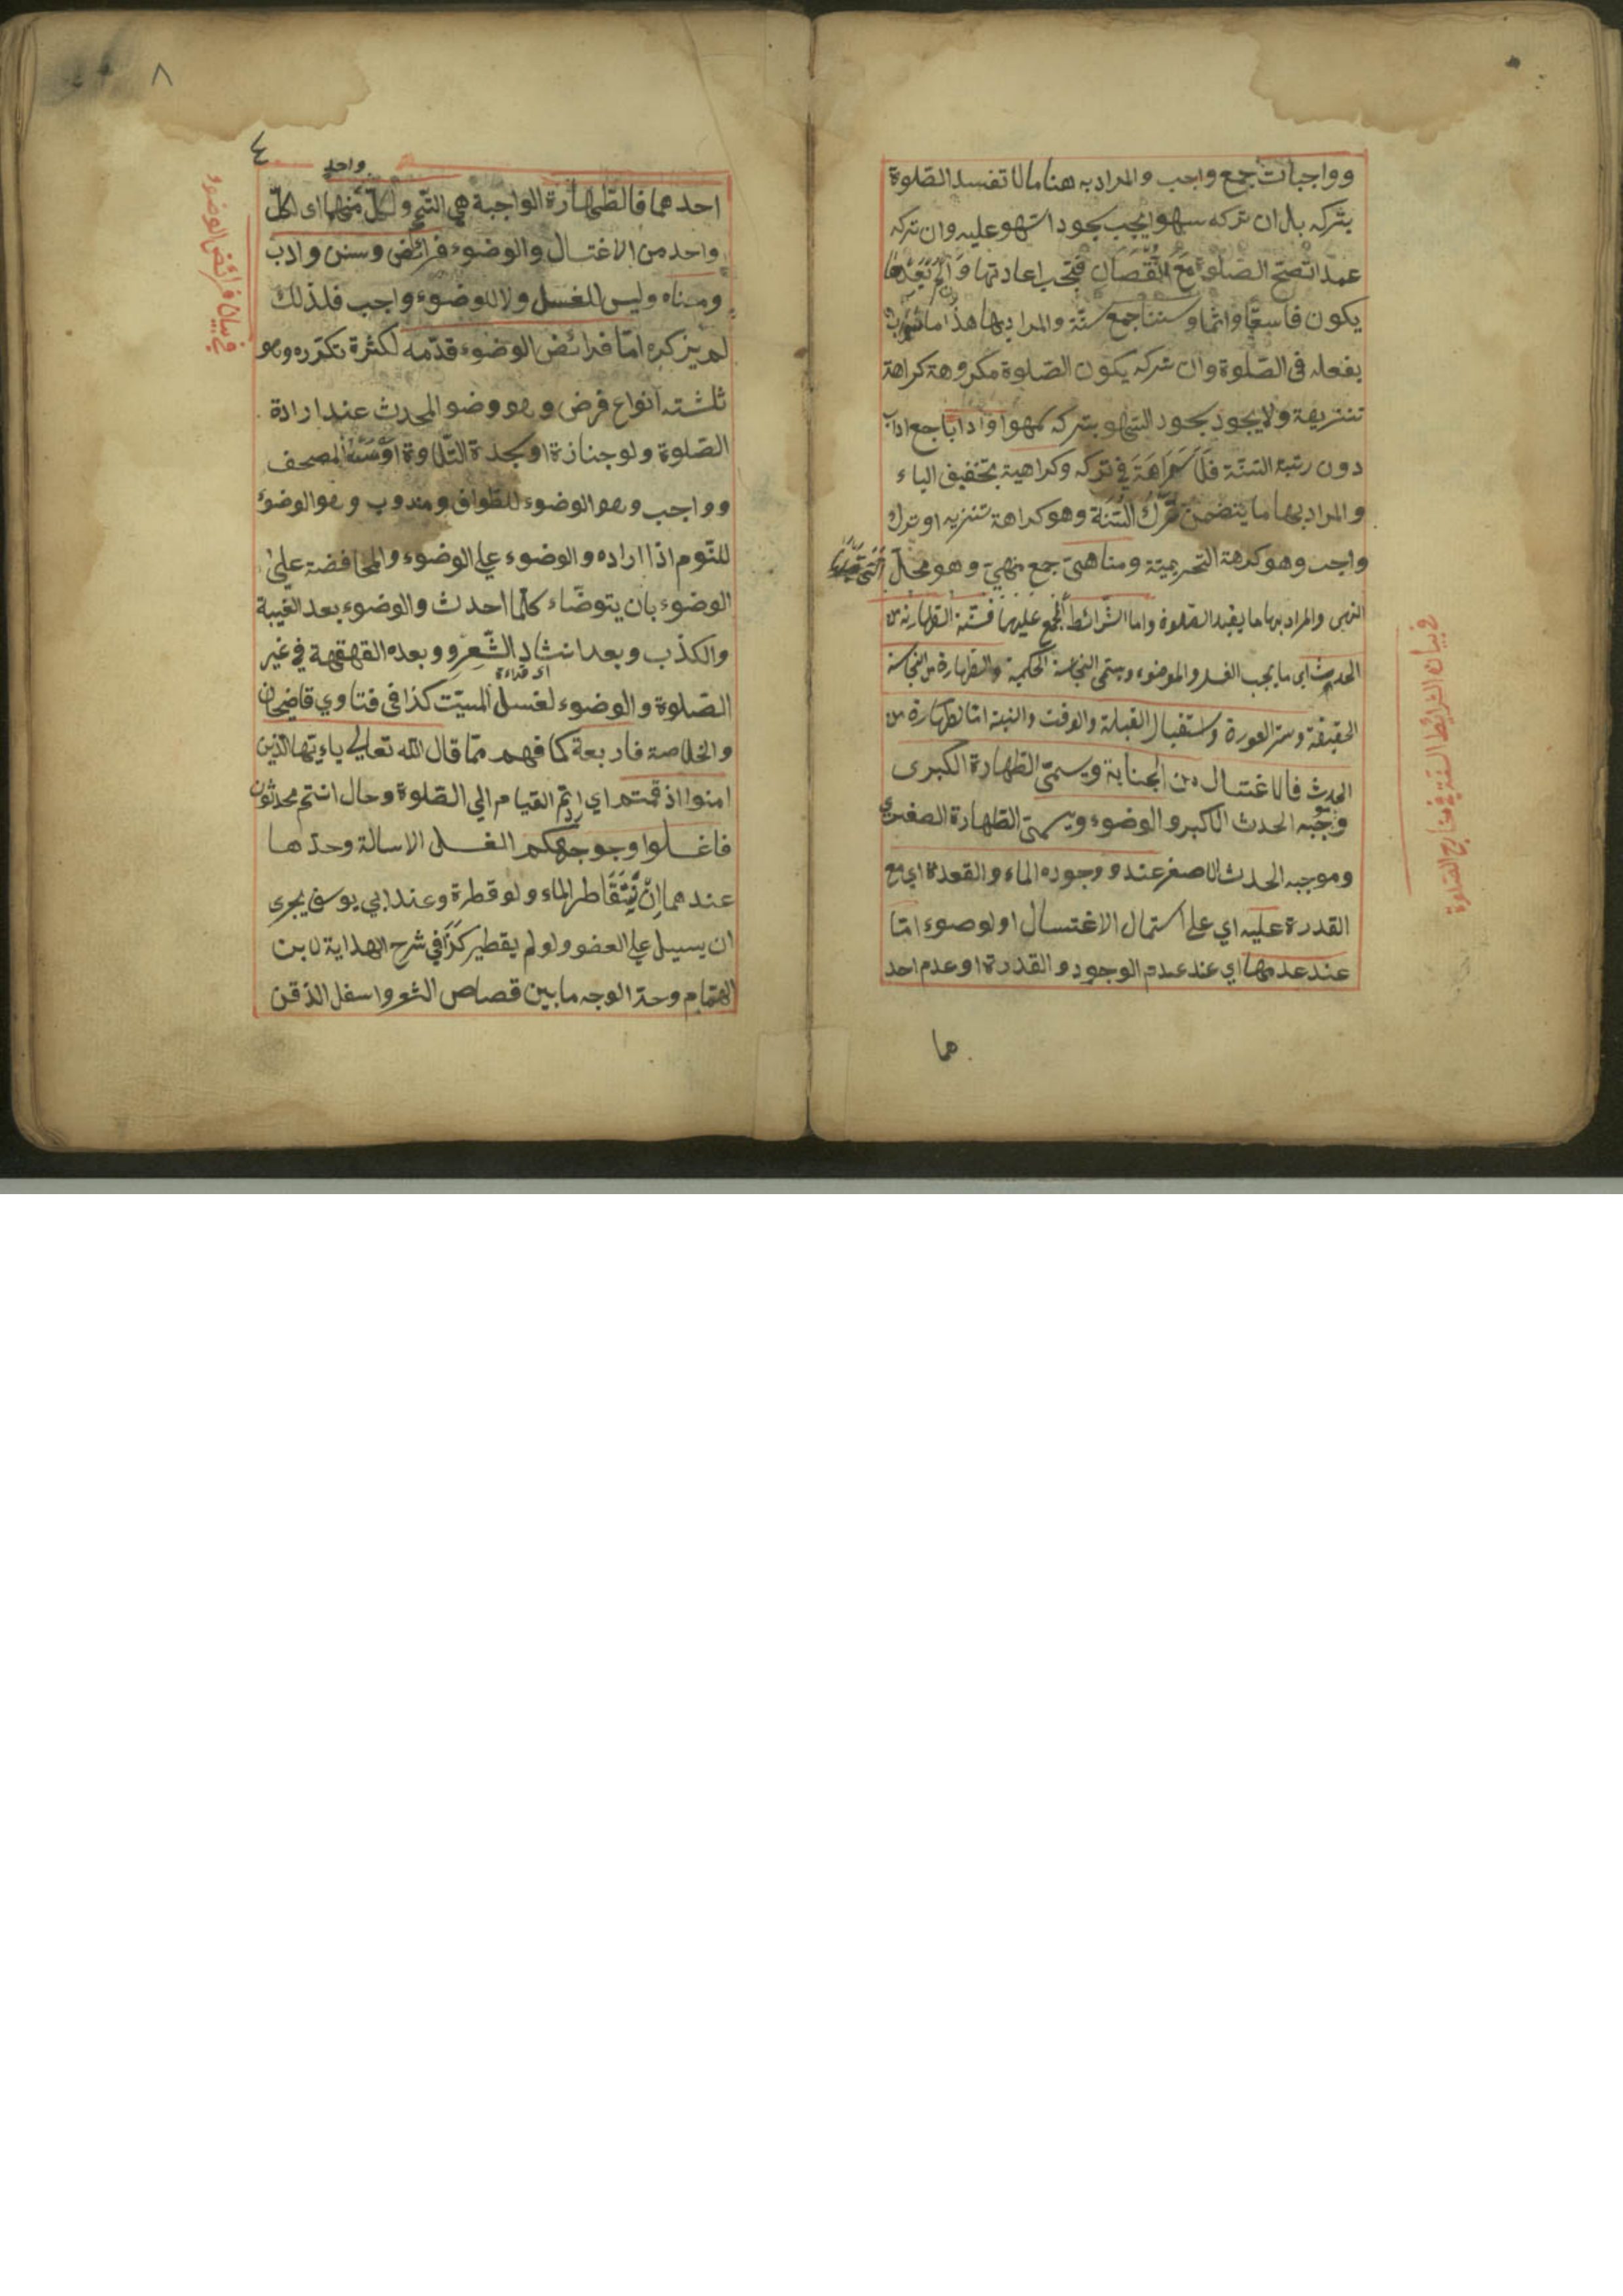 وواجبات جمع واجب والمراد به هنا مالا تفسد الصلوة
بتركه بل ان تركه سهوا يجب سجود السهو عليه وان تركه
عمدا تصح الصلوة مع النقصان فتجب اعادتها وان لم يعدها
يكون فاسقا واثما وسننا جمع سنة والمراد بها هذا ما
بفعله فى الصلوة وان تركه يكون الصلوة مكروهة كراهة
تنزيهة ولا يجود سجود السهو بتركه سهوا وادابا جمع اداب
دون رتبة السنة فلا كراهة في تركه وكراهية بتخفيف الياء
والمراد بها ما يتضمن ترك السنة وهو كراهة تنزيه او ترك
واجب وهو كرهة التحريمية ومناهى جمع منهي وهو محل
النهى والمراد بها ما يفسد الصلوة واما الشرائط المجمع عليها فستة الطهارة من
الحدث اى ما يجب الغسل والوضوء ويسمى النجاسة الحكمية والطهارة من النجاسة
الحقيقة وستر العورة واستقبال القبلة والوقت والنية اما الطهارة من
الحدث فالاغتسال من الجنابة ويسمى الطهارة الكبرى
وموجبه الحدث الاكبر والوضوء ويسمى الطهارة الصغرى
وموجبه الحدث الاصغر عند وجوده الماء والقعدة اي مع
القدرة عليه اي على استمال الاغتسال او لوضوء اما
عند عدمها اي عند عدم الوجود والقدرة او عدم احد
هما
في بيان الشرائط الستة في خارج الصلوة
٨
٤
واحد
احدهما فالطهارة الواجبة هي التيمم ولكل منهما اى لكل
واحد من الاغتسال والوضوء فرائض وسنن واداب
ومناه وليس للغسل ولا للوضوء واجب فلذلك
لم يزكره اما فرائض الوضوء قدمه لكثرة تكرره وهو
ثلثته انواع فرض وهو وضو المحدث عند ارادة
الصلوة ولو جنازة او سجدة التلاوة او مس المصحف
وواجب وهو الوضوء للطواف ومندوب وهو الوضوء
للنوم اذا اراده والوضوء على الوضوء والمحافضة على
الوضوء بان يتوضاء كلما احدث والوضوء بعد الغيبة
والكذب وبعد انشاد الشعر وبعده القهقهة في غير
اى قراءة
الصلوة والوضوء لغسل الميت كذا فى فتاوي قاضيخان
والخلاصة فاربعة كما فهم مما قال الله تعالى ياءيها الذين
امنوا اذ قمتم اي اردتم القيام الي الصلوة وحال انتم محدثون
فاغسلوا وجوهكم الغسل الاسالة وحدها
عندهما ان يتقاطر الماء ولو قطرة وعند ابي يوسف يجرى
ان يسيل علي العضو ولو لم يقطير كذا في شرح الهداية لابن
الهمام وحد الوجه ما بين قصاص الشعر واسفل الذقن
في بيان فرائض الوضوء